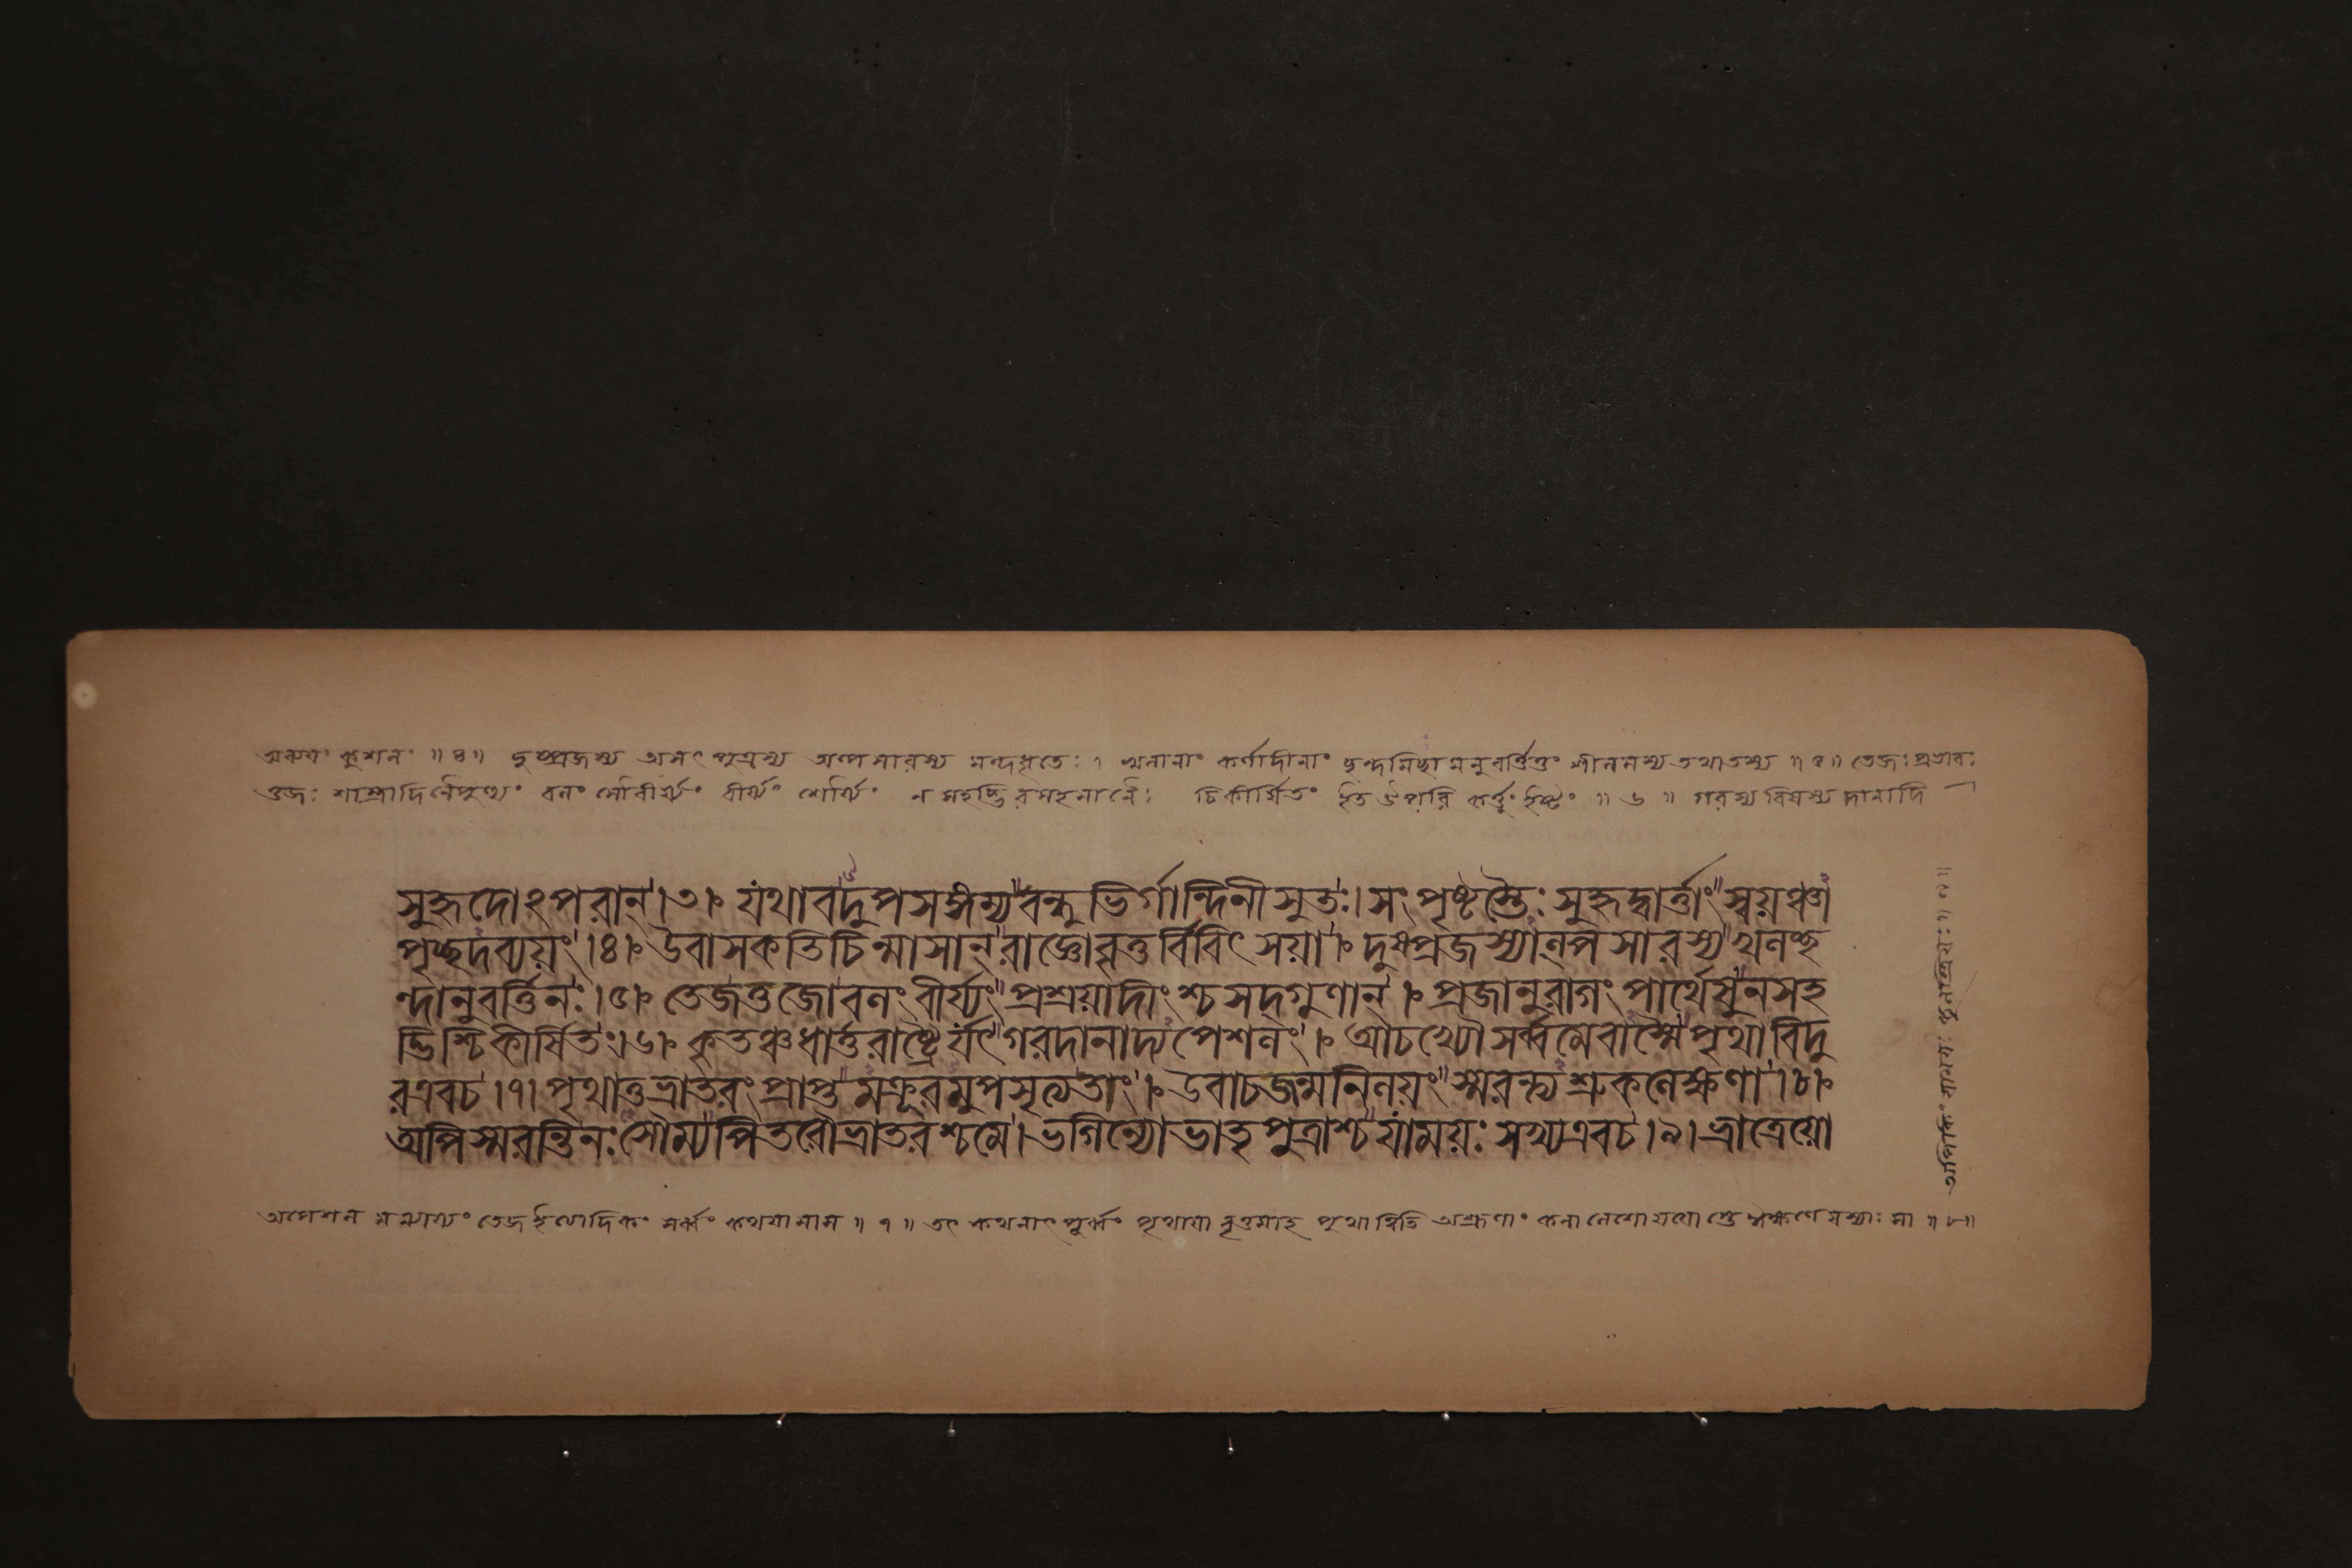 অব্যয়ং কুশলং ॥ ৪ ॥ দুষ্প্রজস্য অসৎপুত্রস্য অল্পসারস্য মন্দধৃতেঃ । খলানাং কর্ণাদীনাং ছন্দমিচ্ছামনুবর্ত্তিতুং শীলমস্য তথাতস্য ॥ ৫ ॥ তেজঃ প্রভাবঃ
ওজঃ শাস্ত্রাদিনৈপুণ্যং বলং বীর্য্যং শৌর্য্যং ন সহদ্ভিরসহমানৈঃ চিকীর্ষিতং ইত উপরি কর্ত্তুং ইষ্টং ॥ ৬ ॥ গরস্য বিষস্য দানাদি
সুহৃদোঽপরান্ । ৩ । যথাবদুপসঙ্গম্য বন্ধুভির্গান্দিনীসুতঃ । সংপৃষ্টস্তৈঃ সুহৃদ্বার্ত্তাং স্বয়ঞ্চা
পৃচ্ছদব্যয়ং । ৪ । উবাস কতিচিন্মাসান্ রাজ্ঞো বৃত্তবিবিৎসয়া । দুষ্প্রজস্যাল্পসারস্য খলচ্ছ
ন্দানুবর্ত্তিনঃ । ৫ । তেজওজোবলং বীর্য্যং প্রশ্রয়াদীংশ্চ সদ্গুণান্ । প্রজানুরাগং পার্থেষু ন সহ
দ্ভিশ্চিকীর্ষিতং । ৬ । কৃতঞ্চ ধার্ত্তরাষ্ট্রৈর্যৎ গরদানাদ্যপেশলং । আচখ্যৌ সর্ব্বমেবাস্মৈ পৃথা বিদু
র এব চ । ৭ । পৃথাতু ভ্রাতরং প্রাপ্তমক্রূরমুপসৃত্য তং । উবাচ জন্মনিলয়ং স্মরন্ত্যশ্রুকলেক্ষণা । ৮ ।
অপি স্মরন্তি নঃ সৌম্য পিতরৌ ভ্রাতরশ্চ মে । ভগিন্যো ভ্রাতৃপুত্রাশ্চ যাময়ঃ সখ্য এব চ । ৯ । ভ্রাত্রেয়ো
অপেশলং তেজ ইত্যাদিকং সর্ব্বং কথয়ামাস ॥ ৭ ॥ তৎ কথনাৎ পূর্ব্বং পৃথায়া বৃত্তমাহ পৃথাত্বিতি অশ্রূণাং কলা লেশো যয়োস্তে ঈক্ষণে যস্যাঃ সা ॥ ৮ ॥
যাময়ঃ কুলস্ত্রিয়ঃ ॥ ৯ ॥